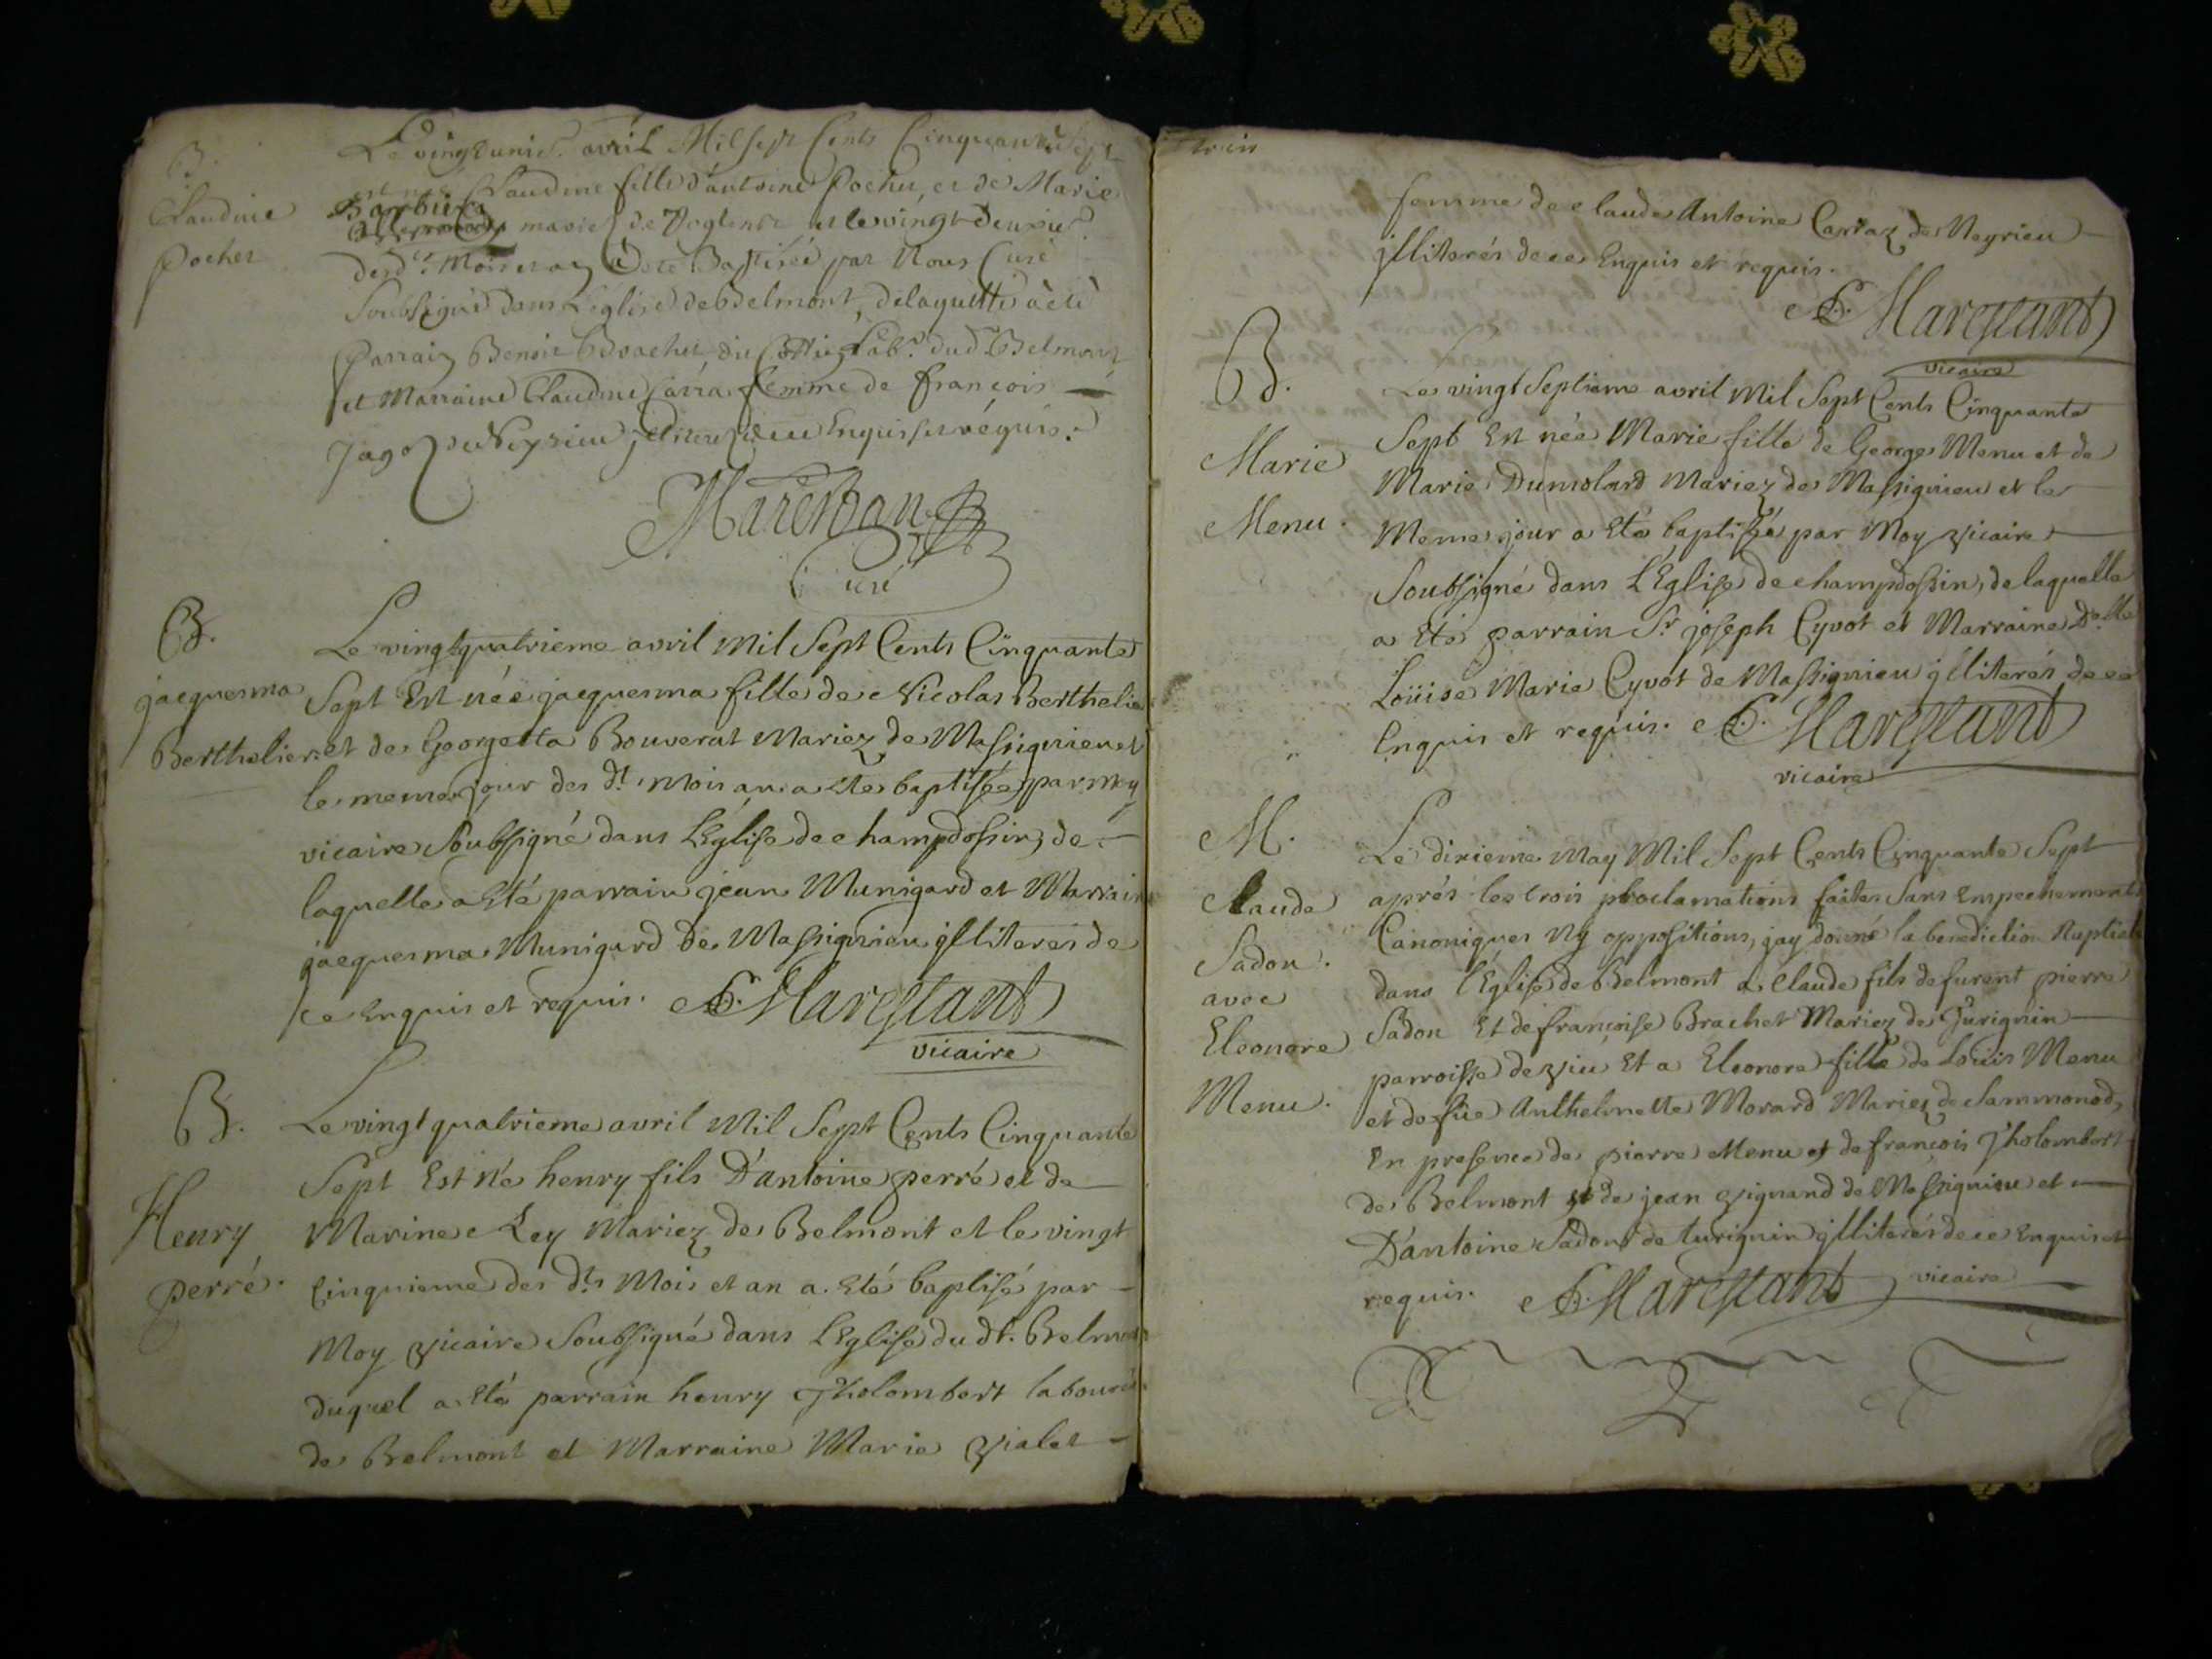 B.
Claudine
Pochet
Le vingt unie. avril Mil sept Cents Cinquante Sept
est née Claudine fille d'antoine Pochet, et de Marie
mariez de Voglens et le vingt deuxie.
desd.ts Mois et an a été Baptisée par Nous Curé
Soubsigné dans L'église de Belmont, delaquelle à été
Parrain Benoit Brachet du Lab.r dud Belmont
et Marraine Claudine Carra femme de françois
Jago de Neyrieu de ce Enquis et réquis.
Marestan
Curé
B.
jacquesma
Berthelier.
Le vingtquatrieme avril Mil Sept Cents Cinquante
Sept Est née jacquesma fille de Nicolas Berthelie
et de Georgetta Bouverat Mariez de Massignieu et
le meme jour des d.t Mois an a Ete baptisée par moy
vicaire Soubsigné dans L'Eglise de champdossin, de
laquelle a Eté parrain jean Munigard et Marrain
jacquesma Munigard de Massignieu jlliterés de
ce Enquis et requis. Marestant
vicaire
B.
Henry
perré.
Le vingt quatrieme avril Mil Sept Cents Cinquante
Sept Est Né henry fils D'antoine perré et de
Marine Ley Mariez de Belmont et le vingt
Cinquieme des d.ts Mois et an a Eté baptisé par
Moy vicaire Soubsigné dans L'Eglise du dt. Belmo
duquel a Eté parrain henry Tholombert laboure
de Belmont et Marraine Marie Vialet
femme de claude Antoine Carraz de Neyrieu
jlliterés de ce Enquis et requis.
Marestant
vicaire
B.
Marie
Menu.
Le vingt Septieme avril Mil Sept Cents Cinquante
Sept Est née Marie fille de George Menu et de
Marie Dumolard Mariez de Massignieu et le
Meme jour a Eté baptisée par Moy vicaire
Soubsigné dans L'Eglise de champdossin, de laquelle
a Eté parrain S.r joseph Cyvot et Marraine D.elle
Loüise Marie Cyvot de Massignieu jlliterés de ce
Enquis et requis. Marestant
vicaire
M.
Claude
Sadon.
avec
Eleonore
Menu.
Le dixieme May Mil Sept Cents Cinquante Sept
aprés les trois proclamations faites Sans Empechements
Canoniques Ny oppositions, jay donné la benediction Nuptiale
dans l'Eglise de Belmont a Claude fils defurent pierre
Sadon Et de françoise Brachet Mariez de Turignin
parroisse de vieu Et a Eleonore fille de Loüis Menu
et de füe Anthelmette Morard Mariez de Sammonod,
En presence de pierre Menu et de françois Tholombert
de Belmont et de jean vignand de Massignieu et
D'antoine Sadon de turignin jlliterés de ce Enquis et
requis. Marestant vicaire